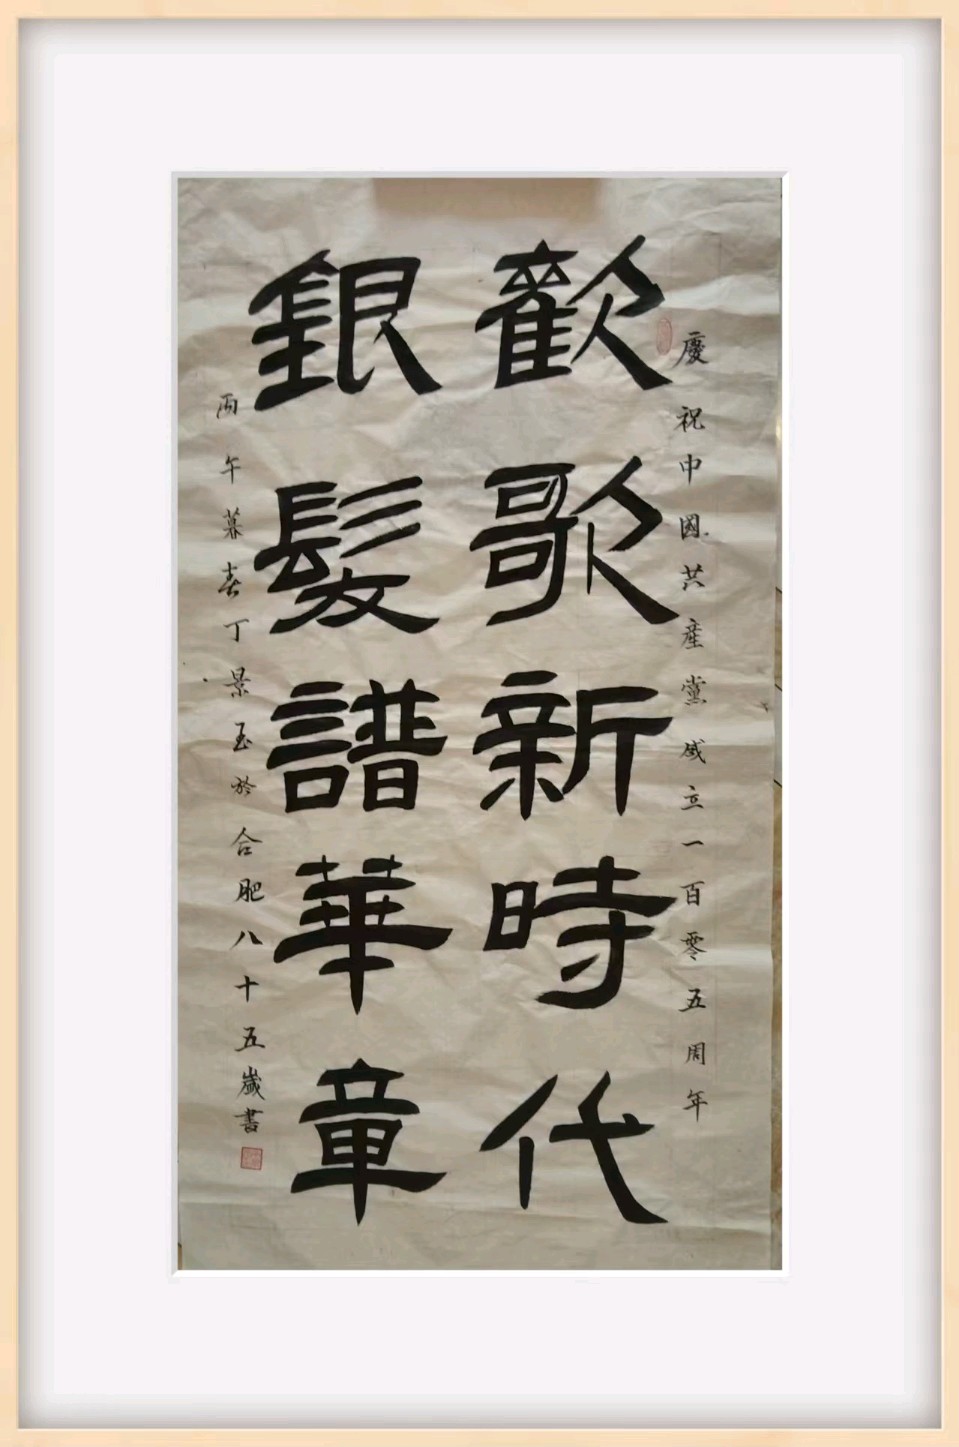 慶祝中國共產黨成立一百零五周年
歡歌新時代
銀髮譜華章
丙午暮春丁景玉於合肥八十五歲書